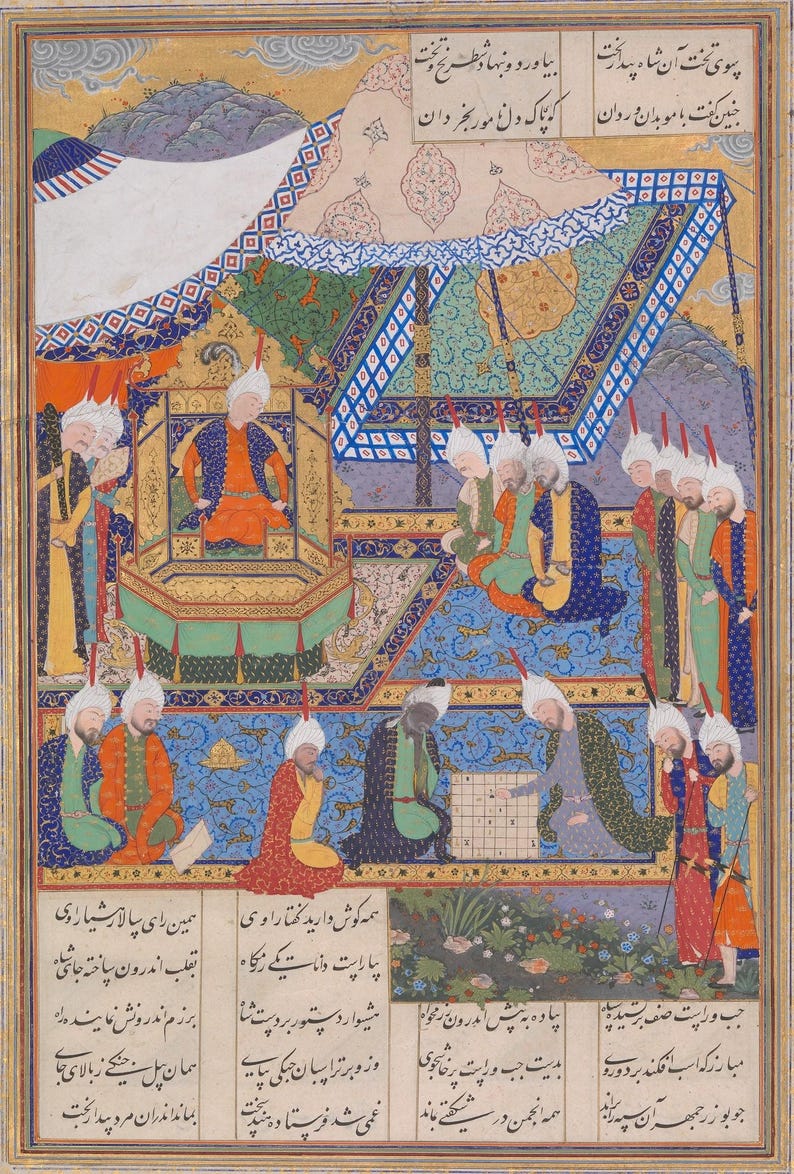 بسوی تخت آن شاه بیدار بخت بیاورد و بنهاد شطرنج و تخت
چنین گفت با موبدان و ردان که ای پاک دل نامور بخردان
همه گوش دارید گفتار اوی همین رای سالار هشیار اوی
بیاراست دانا یکی رزمگاه بقلب اندرون ساخته جای شاه
چپ و راست صف برکشیده سپاه پیاده به پیش اندرون رزمخواه
هشیوار دستور بر دست شاه برزم اندرونش نماینده راه
مبارز که اسپ افکند بر دو روی بدست چپ و راست پرخاشجوی
وزو برتر اسپان جنگی بپای همان پیل جنگی ز بالای جای
چو بوزرجمهر آن سپه را براند همه انجمن در شگفتی بماند
غمی شد فرستاده هند سخت بماند اندر ان مرد بیدار بخت